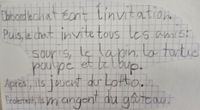 D'abord le chat écrit l'invitation.
Puis, le chat invite tous les amis:
souris, le lapin la tortue
par pe et le loup.
Après, ils jouent du Lotto.
ils mangent du gâteau.